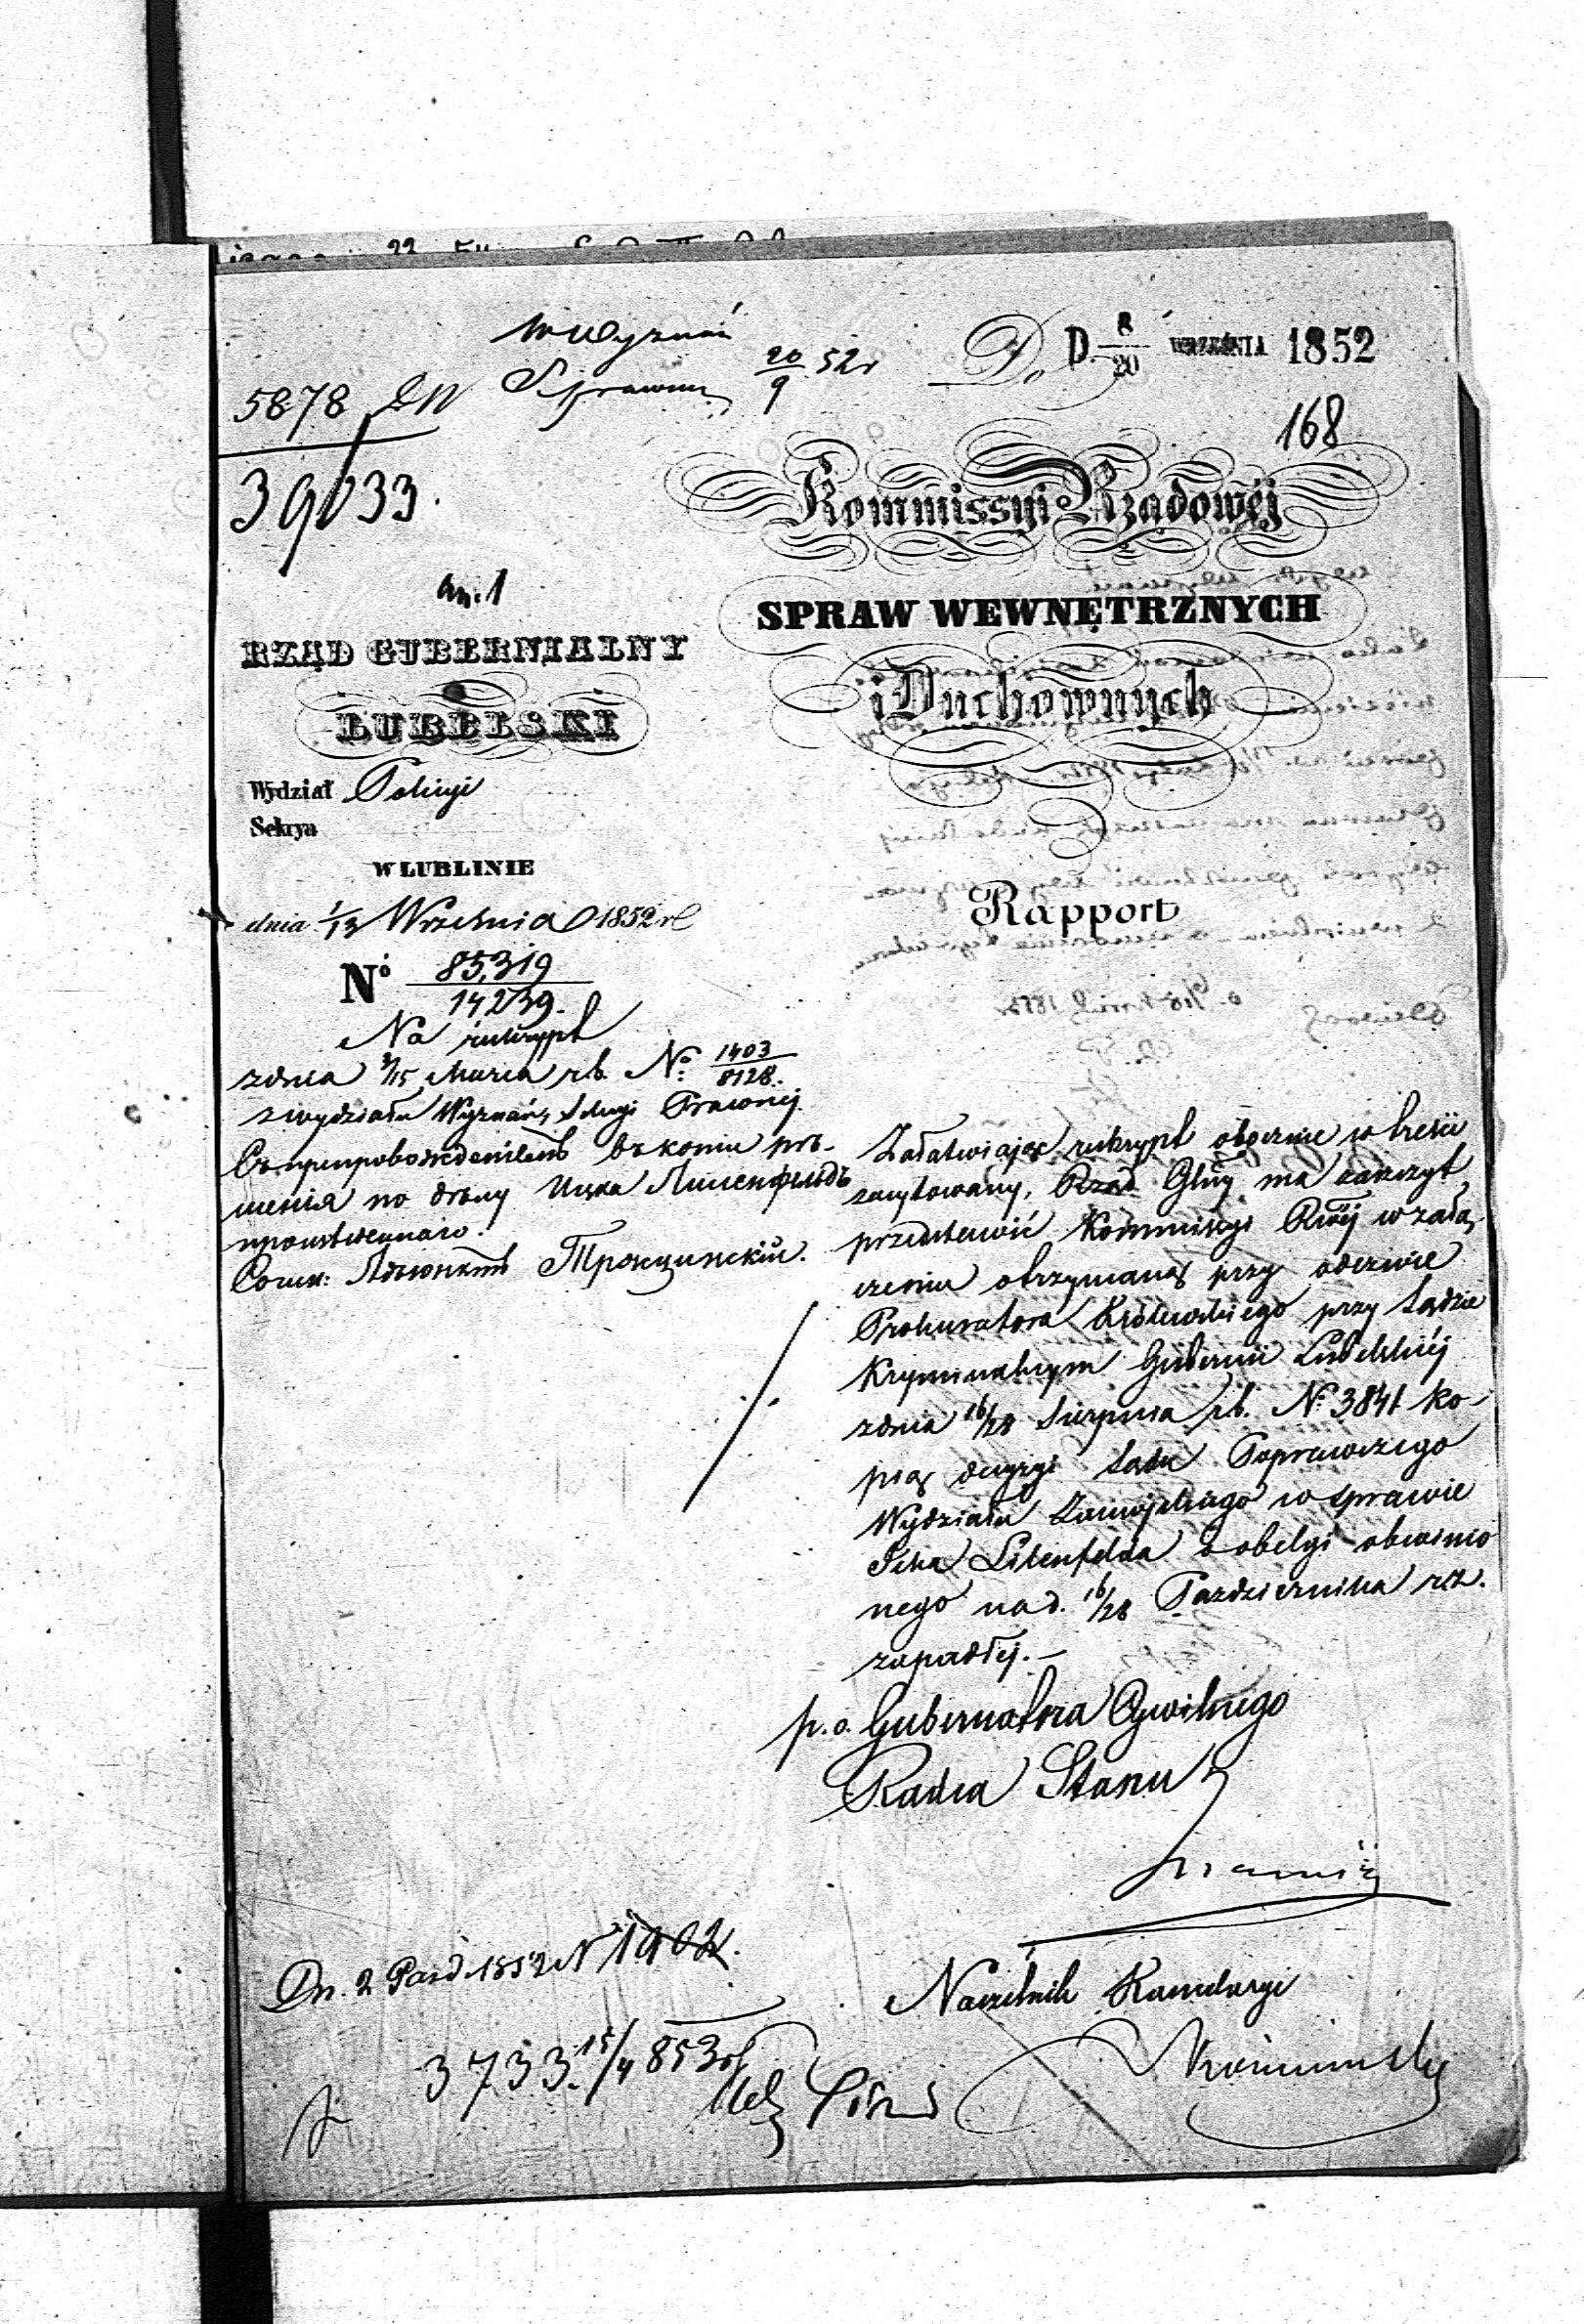 W Wyznań
Sprawny 20/9 52r
Do
D. 8/20 WRZEŚNIA 1852
5878
39033.
168
an. 1
Kommissyi Rządowéj
SPRAW WEWNĘTRZNYCH
i Duchownych
RZĄD GUBERNIALNY
LUBELSKI
Wydział Policyi
Sekcya
W LUBLINIE
dnia 1/13 Września 1852 r
Rapport
Nó 85,319/14,239.
Na reskrypt
z dnia 3/15 Marca r.b. No: 1403/8128.
z wydziału Wyznań, Sekcyi Prawnej
Съ препровожденіемъ въ копіи
по дѣлу Ицка Лиленфельдъ
Трокцинскій.
Załatwiając reskrypt obocznie w treści
zacytowany, Rząd Glny ma zaszczyt
przedstawić Kommissyi Rwéj w załą-
czeniu otrzymaną przy odezwie
Prokuratora Królewskiego przy Sądzie
Kryminalnym Gubernii Lubelskiéj
z dnia 16/28 Sierpnia r.b. No 3841 ko-
pią decyzyi Sądu Poprawczego
Wydziału Zamojskiego w sprawie
Icka Lilenfelda o obelgi obwinio
nego na d. 16/28 Października r.z.
zapadłej. —
p. o. Gubernatora Cywilnego
Radca Stanu
Naczelnik Kancelaryi
Dn. 2 Paźd. 1852 N 1902.
3733. 15/4 853 r